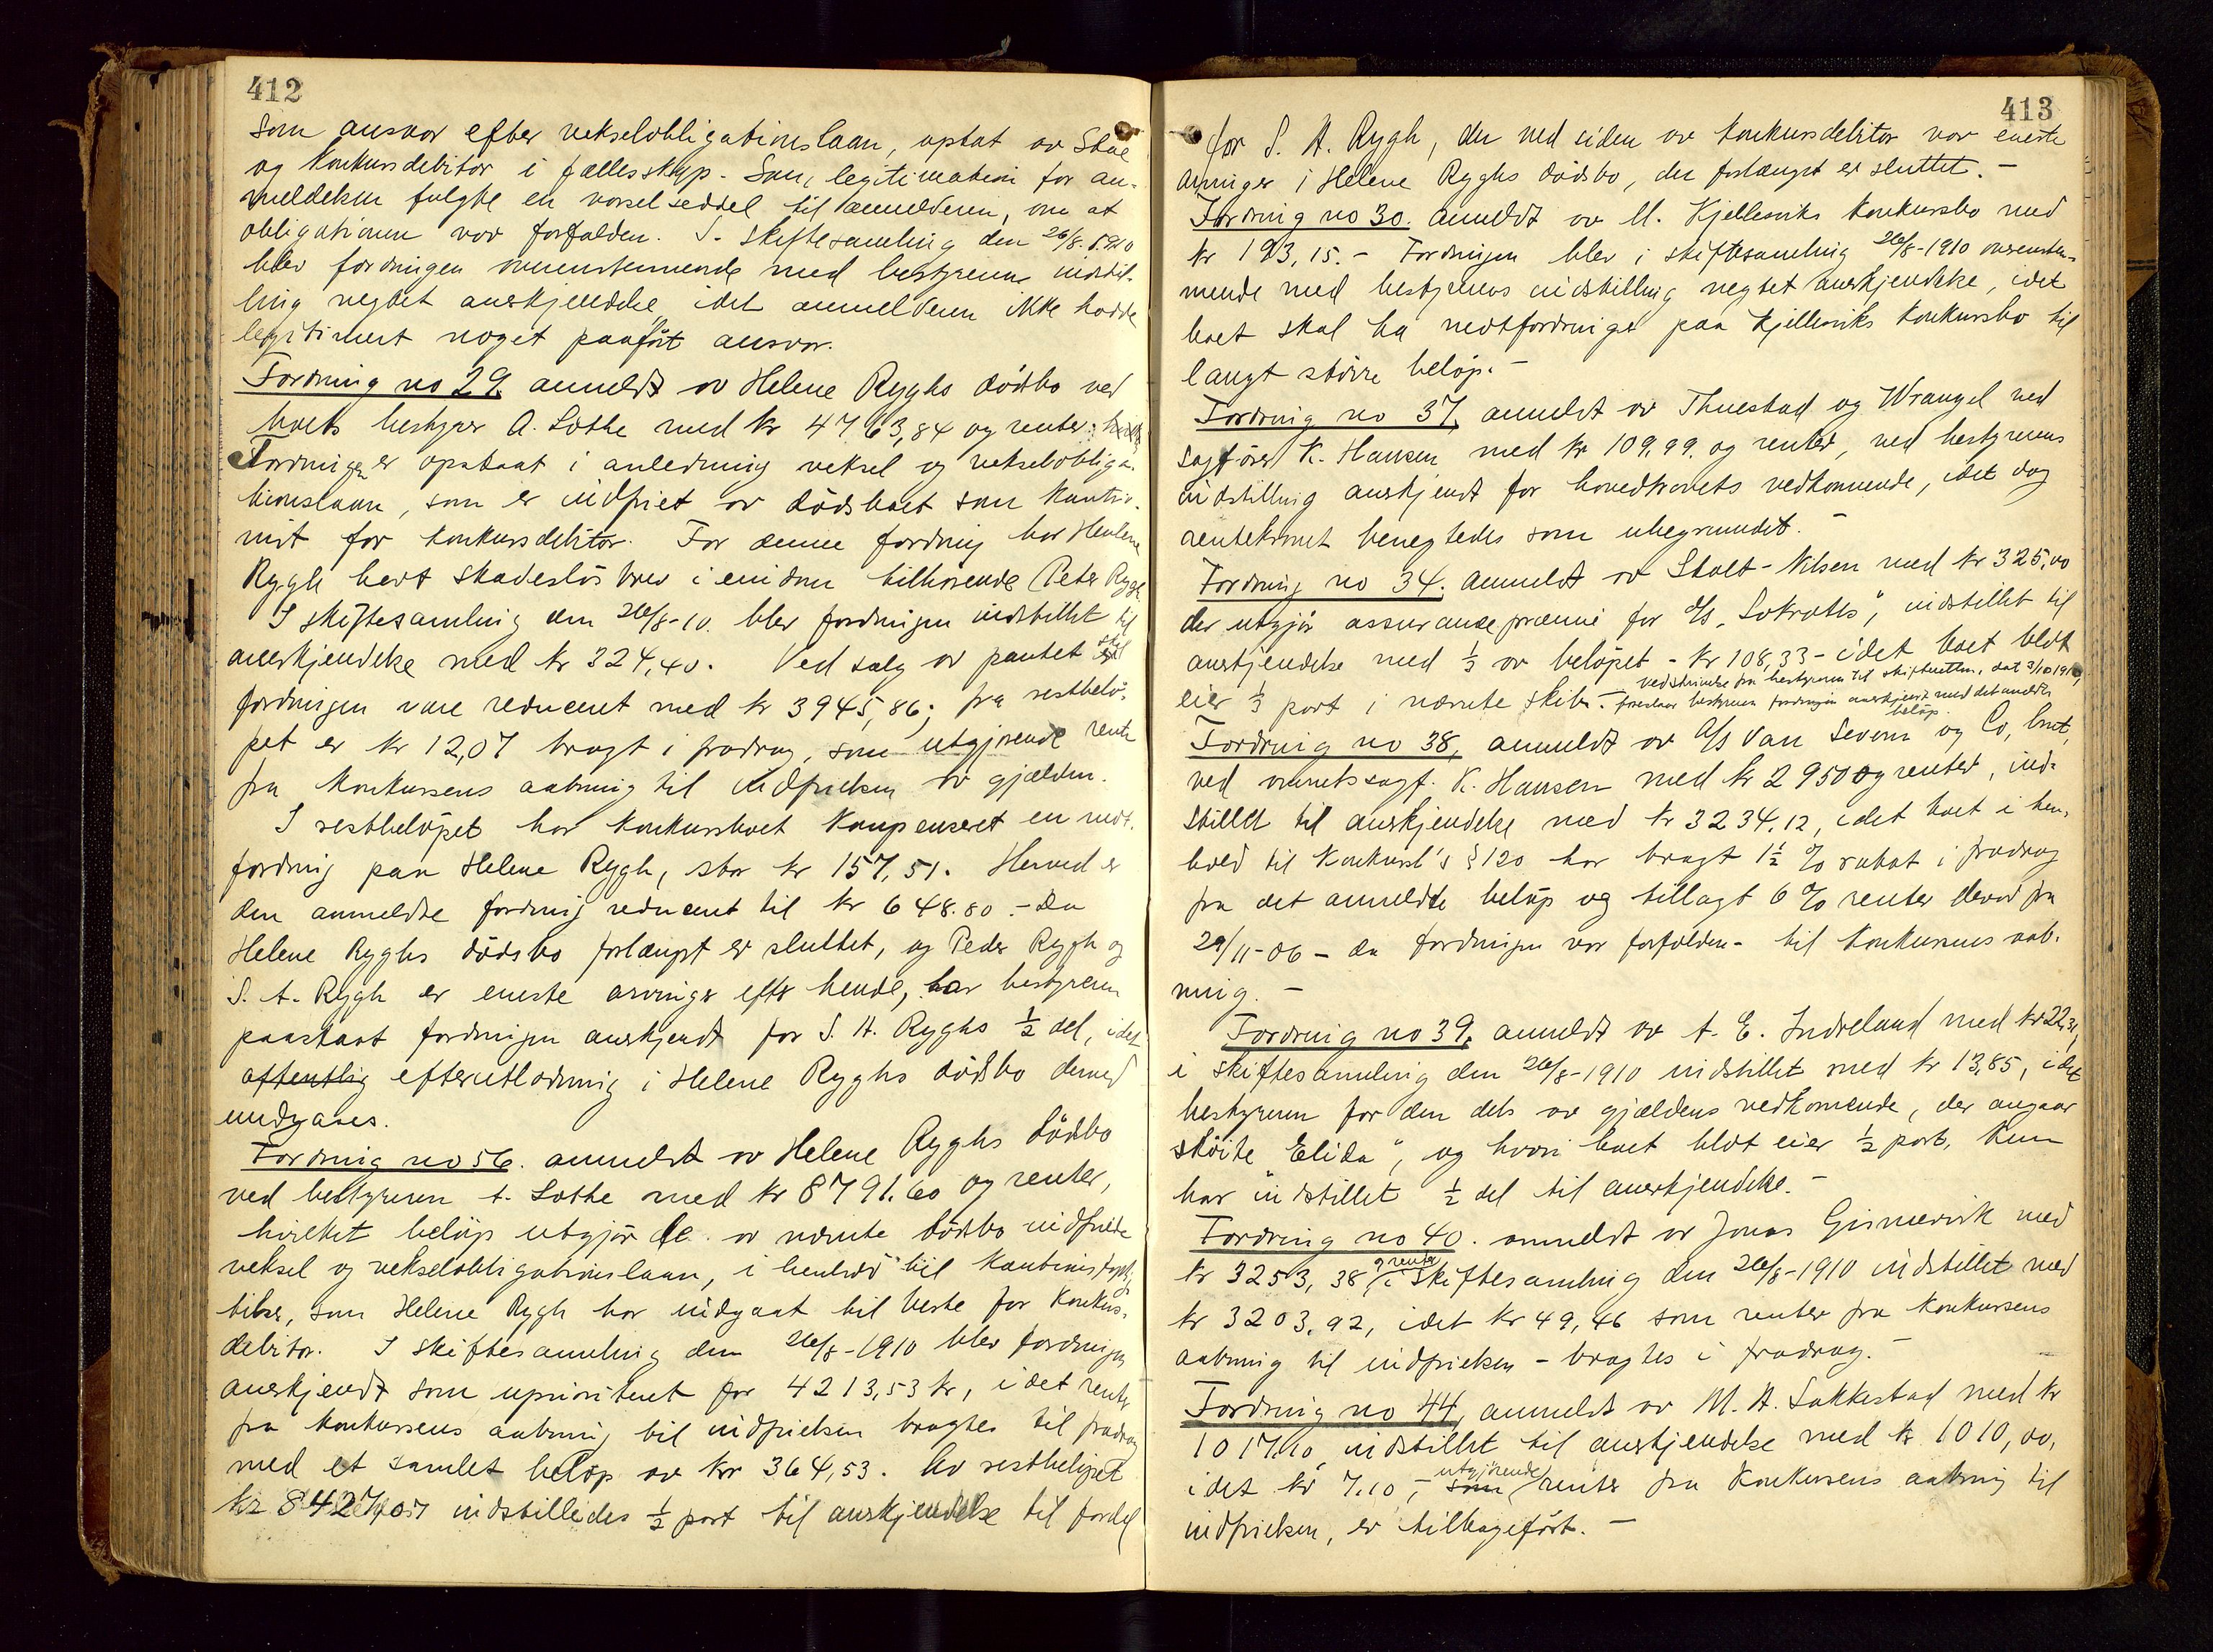 412
som ansvar efter vekselobligationslaan, optat av Skae
og konkursdebitor i fællesskap. Som legitimation for an-
meldelsen fulgte en varselseddel til anmelderen, om at
obligationen var forfalden. I skiftesamling den 26/8-1910
blev fordringen overensstemmende med bestyreren indstil-
ling negtet anerkjendelse idet anmelderen ikke hadde
legitimert noget paaført ansvar.
Fordring no 29. anmeldt av Helene Ryghs dødsbo ved
boets bestyrer A. Lothe med kr 4763,84 og renter.
Fordringen er opstaat i anledning veksel og vekselobliga-
tionslaan, som er indfriet av dødsboet som kautio-
nist for konkursdebitor. For denne fordring har Helene
Rygh havt skadesløsbrev i eiendom tilhørende Peter Rygh
I skiftesamling den 26/8-10. blev fordringen indstillet til
anerkjendelse med kr 324,40. Ved salg av pantet skal
fordringen være reducert med kr 3945,86; fra restbelø-
pet er kr 12,07 bragt i fradrag, som utgjørende rente
fra konkursens aabning til indfrielsen av gjælden.
I restbeløpet har konkursboet kompenseret en mot-
fordring paa Helene Rygh, stor kr 157,51. Herved er
den anmeldte fordring reducert til kr 648.80.- Da
Helene Ryghs dødsbo forlængst er sluttet, og Peder Rygh og
S. A. Rygh er eneste arvinger efter hende, har bestyreren
paastaat fordringen anerkjendt for S. A. Ryghs 1/2 del, idet
offentlig efterutlodning i Helene Ryghs dødsbo derved
undgaaes.
Fordring no 56. anmeldt av Helene Ryghs dødsbo
ved bestyreren A. Lothe med kr 8791.60 og renter,
hvilket beløp utgjør de av nævnte dødsbo indfriede
veksel og vekselobligationslaan, i henhold til kautionsforplig-
telser, som Helene Rygh har indgaat til beste for konkurs-
debitor. I skiftesamling den 26/8-1910 blev fordringen
anerkjendt som uprioritert for 4213,53 kr, idet renter
fra konkursens aabning til indfrielsen bragtes til fradrag
med et samlet beløp av kr 364,53. Av restbeløpet
kr 8427,07 indstilledes 1/2 part til anerkjendelse til fordel
413
for S. A. Rygh, der ved siden av konkursdebitor var eneste
arvinger i Helene Ryghs dødsbo, der forlængst er sluttet.-
Fordring no 30. anmeldt av M. Kjellesviks konkursbo med
kr 193,15.- Fordringen blev i skiftesamling 26/8-1910 overensstem-
mende med bestyrerens indstilling negtet anerkjendelse, idet
boet skal ha motfordringer paa Kjellesviks konkursbo til
langt større beløp.-
Fordring no 37, anmeldt av Thuestad og Wrangel ved
sagfører K. Hansen med kr 109.99. og renter, ved bestyrerens
indstilling anerkjendt for hovedkravets vedkommende, idet dog
rentekravet benegtedes som ubegrundet.-
Fordring no 34. anmeldt av Stolt-Nilsen med kr 325,00
der utgjør assurancepræmie for D/S "Sokrates", indstillet til
anerkjendelse med 1/3 av beløpet - kr 108,33 - idet boet blot
eier 1/3 part i nævnte skib.- ved skrivelse fra bestyreren til skifteretten, dat 3/10 1910,
foreslaar bestyreren fordringen anerkjendt med det anmeldte
beløp.
Fordring no 38, anmeldt av A/S Van Severen og Co, lmt,
ved overretssagf. K. Hansen med kr 2950 og renter, ind-
stillet til anerkjendelse med kr 3234.12, idet boet i hen-
hold til Konkursl's § 120 har bragt 1 1/2 % rabat i fradrag
fra det anmeldte beløp og tillagt 6 % renter derav fra
29/11-06 - da fordringen var forfalden - til konkursens aab-
ning.-
Fordring no 39, anmeldt av A. E. Indreland med kr 22,31,
i skiftesamling den 26/8-1910 indstillet med kr 13,85, idet
bestyreren for den dels av gjældens vedkomende, der angaar
skøite "Elida", og hvori boet blot eier 1/2 part, kun
har indstillet 1/2 del til anerkjendelse.-
Fordring no 40. anmeldt av Jonas Gismervik med
kr 3253,38 og renter i skiftesamling den 26/8-1910 indstillet med
kr 3203,92, idet kr 49,46 som renter fra konkursens
aabning til indfrielsen - bragtes i fradrag.-
Fordring no 44, anmeldt av M. A. Lakkestad med kr
1017.10, indstillet til anerkjendelse med kr 1010,00,
idet kr 7.10, - som utgjørende renter fra konkursens aabning til
indfrielsen, er tilbageført.-